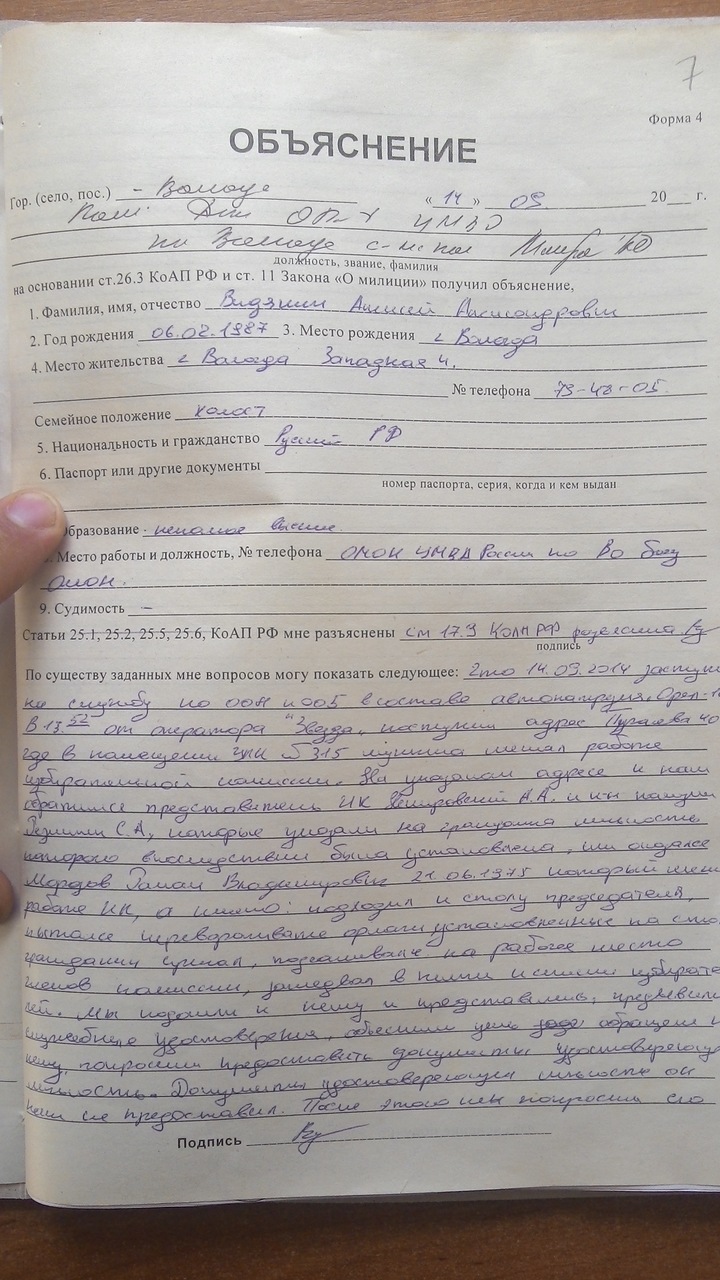 7
Форма 4
ОБЪЯСНЕНИЕ
Гор. (село, пос.) - Вологда « 14 » 09 20 г.
ОП-1 УМВД
по Вологде с-нт пол
должность, звание, фамилия
на основании ст.26.3 КоАП РФ и ст. 11 Закона «О милиции» получил объяснение,
1. Фамилия, имя, отчество Видякин Алексей Александрович
2. Год рождения 06.02.1987 3. Место рождения г Вологда
4. Место жительства г Вологда Западная 4.
№ телефона 73-48-05.
Семейное положение холост
5. Национальность и гражданство Русский РФ
6. Паспорт или другие документы
номер паспорта, серия, когда и кем выдан
Образование - неполное высшее.
Место работы и должность, № телефона ОМОН УМВД России по ВО боец
ОМОН.
9. Судимость —
Статьи 25.1, 25.2, 25.5, 25.6, КоАП РФ мне разъяснены ст 17.9 КоАП РФ разъяснена
подпись
По существу заданных мне вопросов могу показать следующее: Что 14.09.2014 заступил
на службу по ООП и ООБ в составе автопатруля Орел-
В 13.52 от оператора "Звезда" поступил адрес Пугачева 40
где в помещении УИК № 315 мужчина мешал работе
избирательной комиссии. На указаном адресе к нам
обратился представитель ИК А.А. и
С.А, которые указали на гражданина личность
которого впоследствии была установлена, им оказался
Роман Владимирович 21.06.1975 который
работе ИК, а именно: подходил к столу председателя,
пытался переворачивать установленные на
граждани кричал, подсаживался на рабочее место
членов комиссии, заглядывал в книги избирате
лей. Мы подошли к нему и представились, предъявили
служебные удостоверения, объяснили цель обращения к
нему, попросили предоставить документы удостоверяющие
личность. Документы удостоверяющие личность он
нам не предоставил. После этого мы попросили его
Подпись